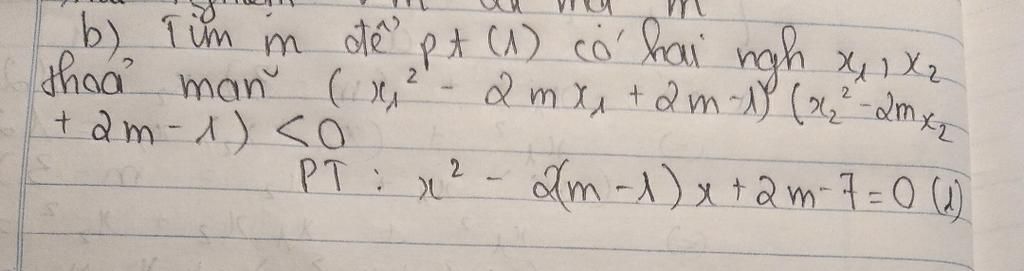 b) Tìm m để pt (1) có hai ngh x₁, x₂
thoả mãn (x₁² - 2mx₁ + 2m-1) (x₂² - 2mx₂
+ 2m - 1) < 0
PT : x² - 2(m - 1)x + 2m - 7 = 0 (1)